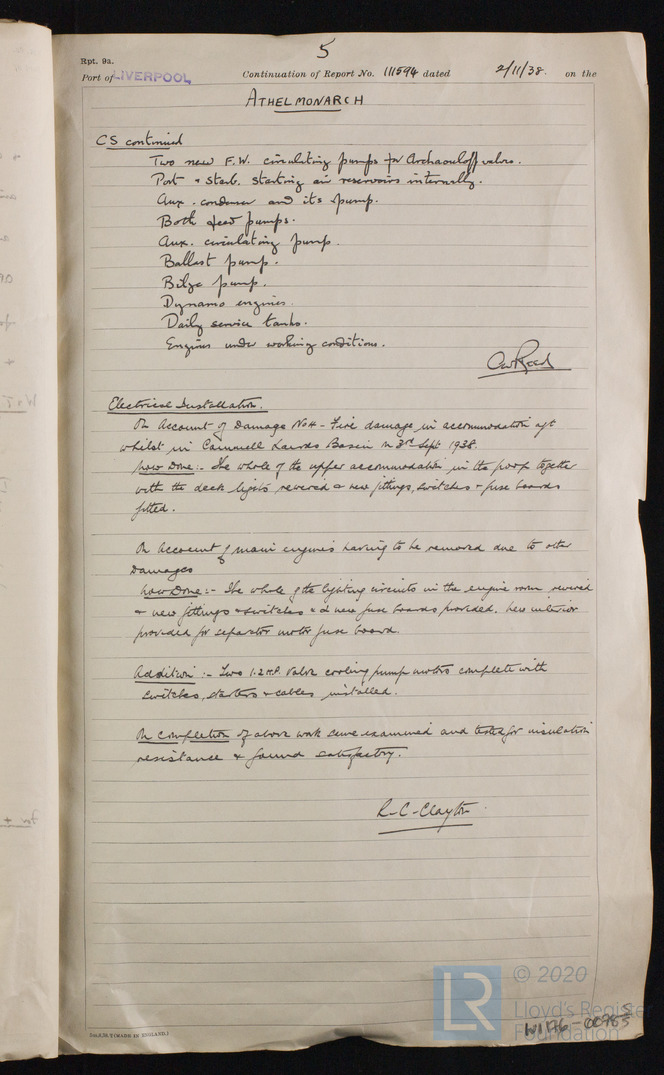 5
Rpt. 9a.
Port of LIVERPOOL Continuation of Report No. 111594 dated 2/11/38. on the
ATHELMONARCH
CS continued
Two new F.W. circulating pumps for Archaouloff valves.
Port & Starb. starting air reservoirs internally.
Aux. condenser and its pump.
Both feed pumps.
Aux. circulating pump.
Ballast pump.
Bilge pump.
Dynamo engines.
Daily service tanks.
Engines under working conditions.
Electrical Installation.
On Account of Damage No4 - Fire damage in accommodation aft
whilst in Cammell Lairds Basin on 3rd Sept 1938.
Now Done :- The whole of the upper accommodation in the poop together
with the deck lights rewired & new fittings, switches & fuse boards
fitted.
On Account of main engines having to be removed due to other
Damages
Now Done :- The whole of the lighting circuits in the engine room rewired
& new fittings & switches & new fuse boards provided. New interior
provided for separator motor fuse board.
Addition :- Two 1.2 H.P. Valve cooling pump motors complete with
switches, starters & cables installed.
On Completion of above work same examined and tested for insulation
resistance & found satisfactory.
R-C-Clayton
(MADE IN ENGLAND.)
LR © 2020
Lloyd's Register
Foundation
W1176-0096